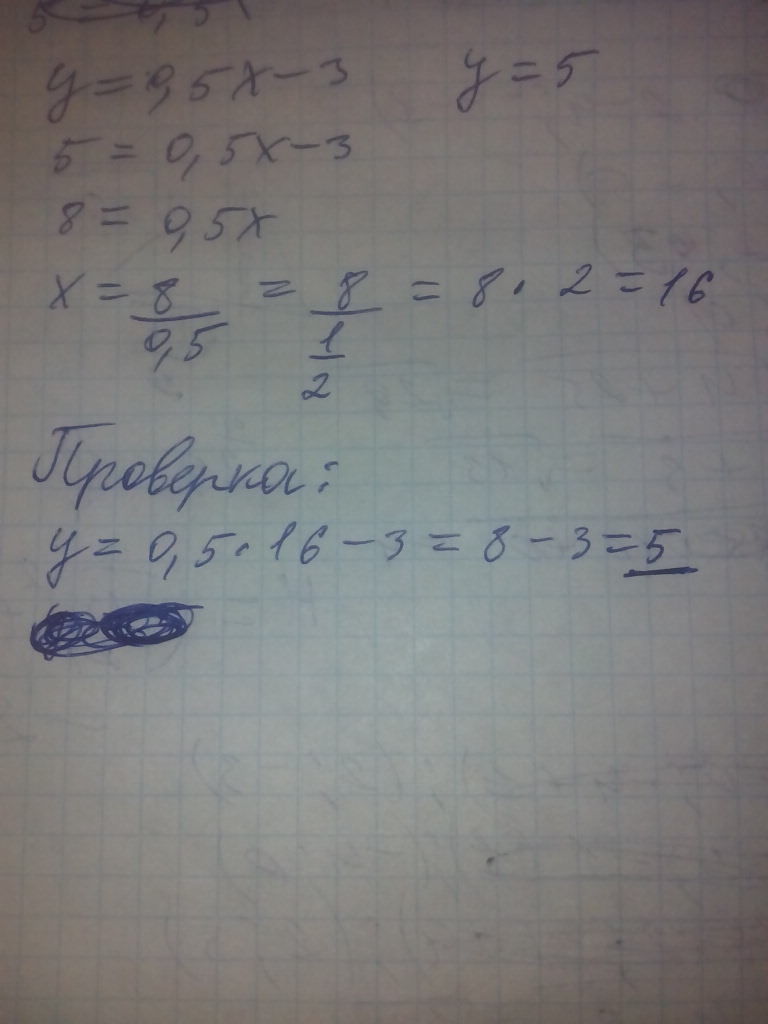 y = 0,5x - 3    y = 5
5 = 0,5x - 3
8 = 0,5x
x = 8/0,5 = 8/(1/2) = 8 · 2 = 16
Проверка:
y = 0,5 · 16 - 3 = 8 - 3 = 5